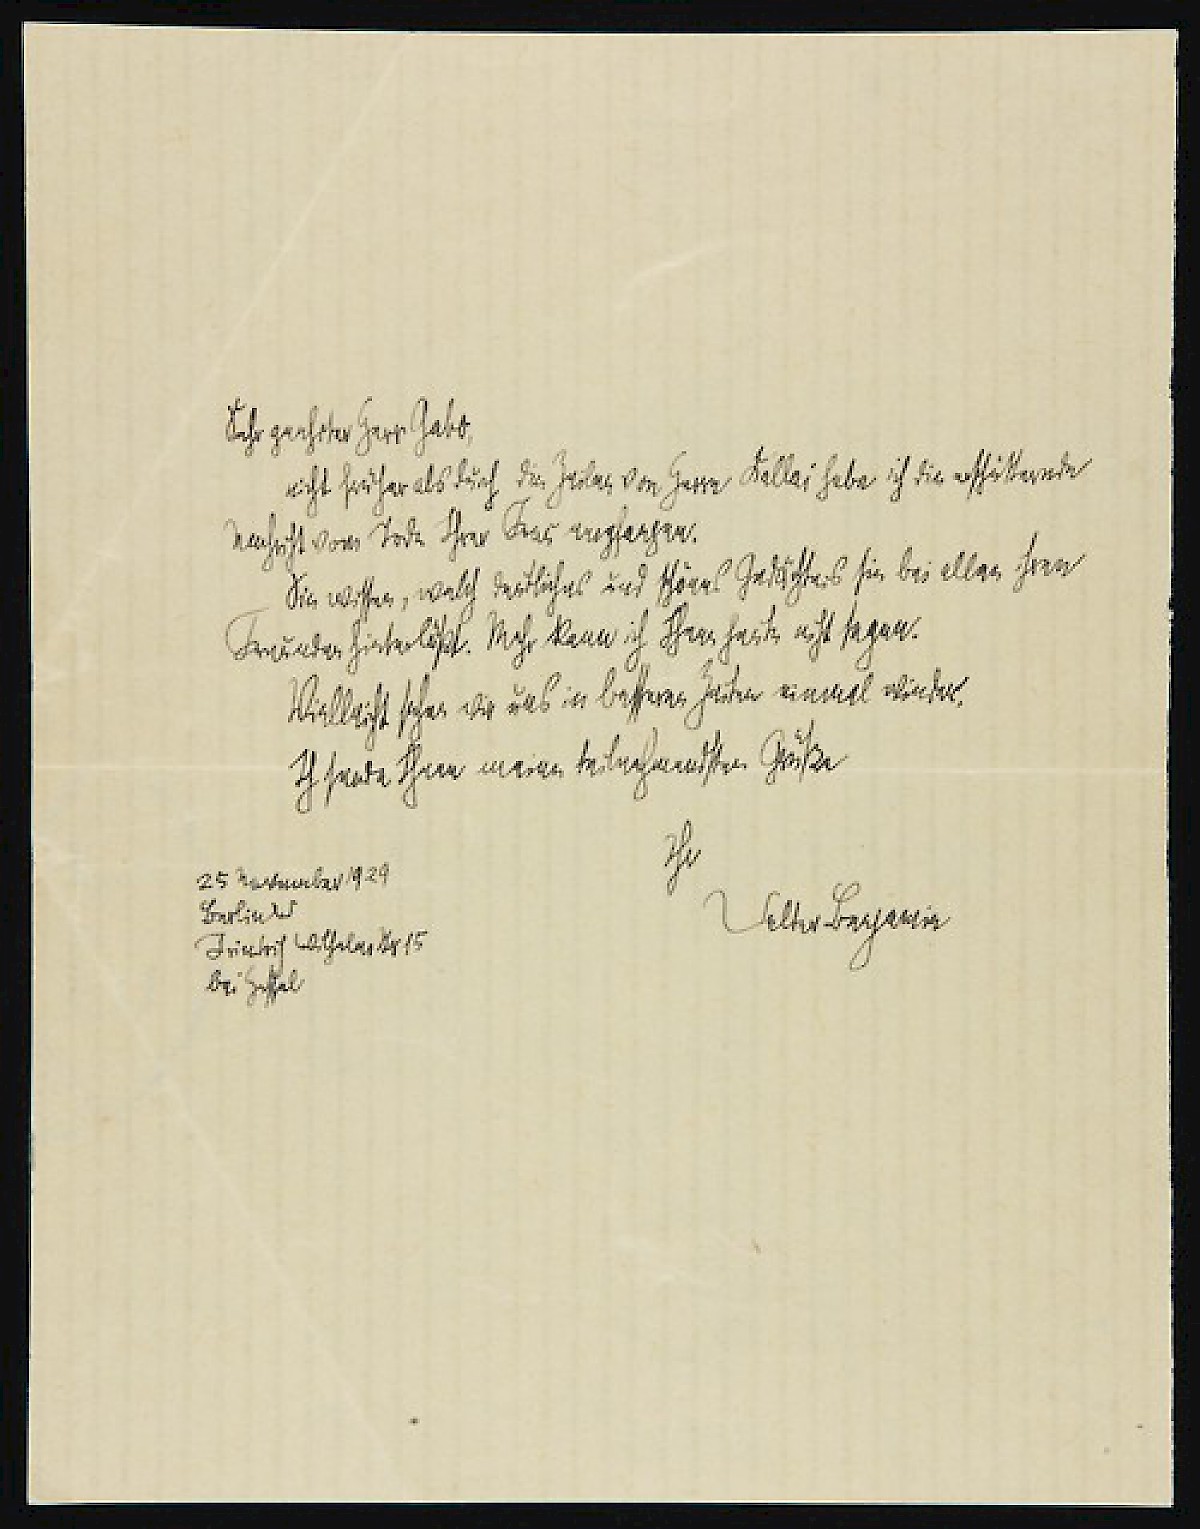 Sehr geehrter Herr Gabo,
nicht früher als durch die Zeilen von Herrn Kallai habe ich die erschütternde
Nachricht vom Tode Ihrer Frau empfangen.
Sie wissen, welch deutliches und schönes Gedächtnis sie bei allen ihren
Freunden hinterläßt. Mehr kann ich Ihnen heute nicht sagen.
Vielleicht sehen wir uns in besseren Zeiten einmal wieder.
Ich sende Ihnen meine teilnehmendsten Grüße
Ihr
Walter Benjamin
25 November 1929
Berlin
Friedrich Wilhelm Str 15
bei Hessel